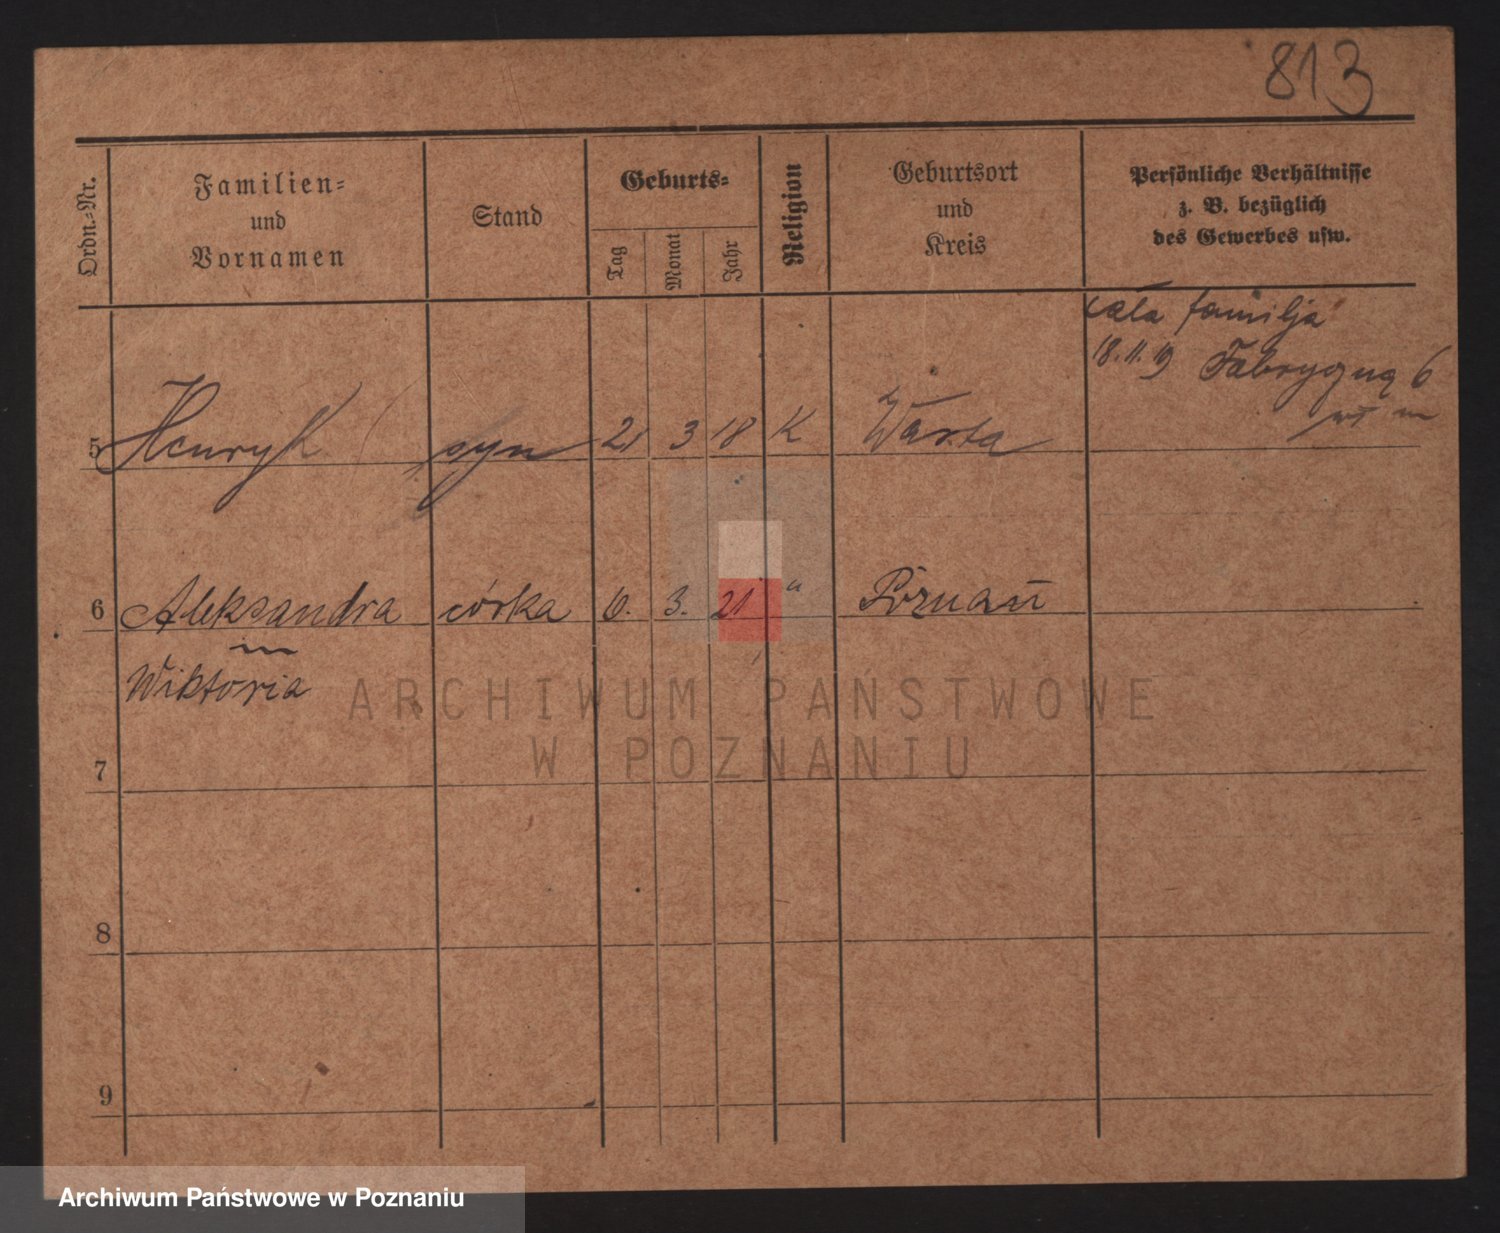 813
Ordn.=Nr.
Familien=
und
Vornamen
Stand
Geburts=
Tag
Monat
Jahr
Religion
Geburtsort
und
Kreis
Persönliche Verhältnisse
z. B. bezüglich
des Gewerbes usw.
cała familja
18.11.19 Fabryczna 6
5 Henryk syn 21 3 18 K Warta
6 Aleksandra córka 6. 3. 21 " Poznań
Wiktoria
7
8
9
ARCHIWUM PAŃSTWOWE
W POZNANIU
Archiwum Państwowe w Poznaniu